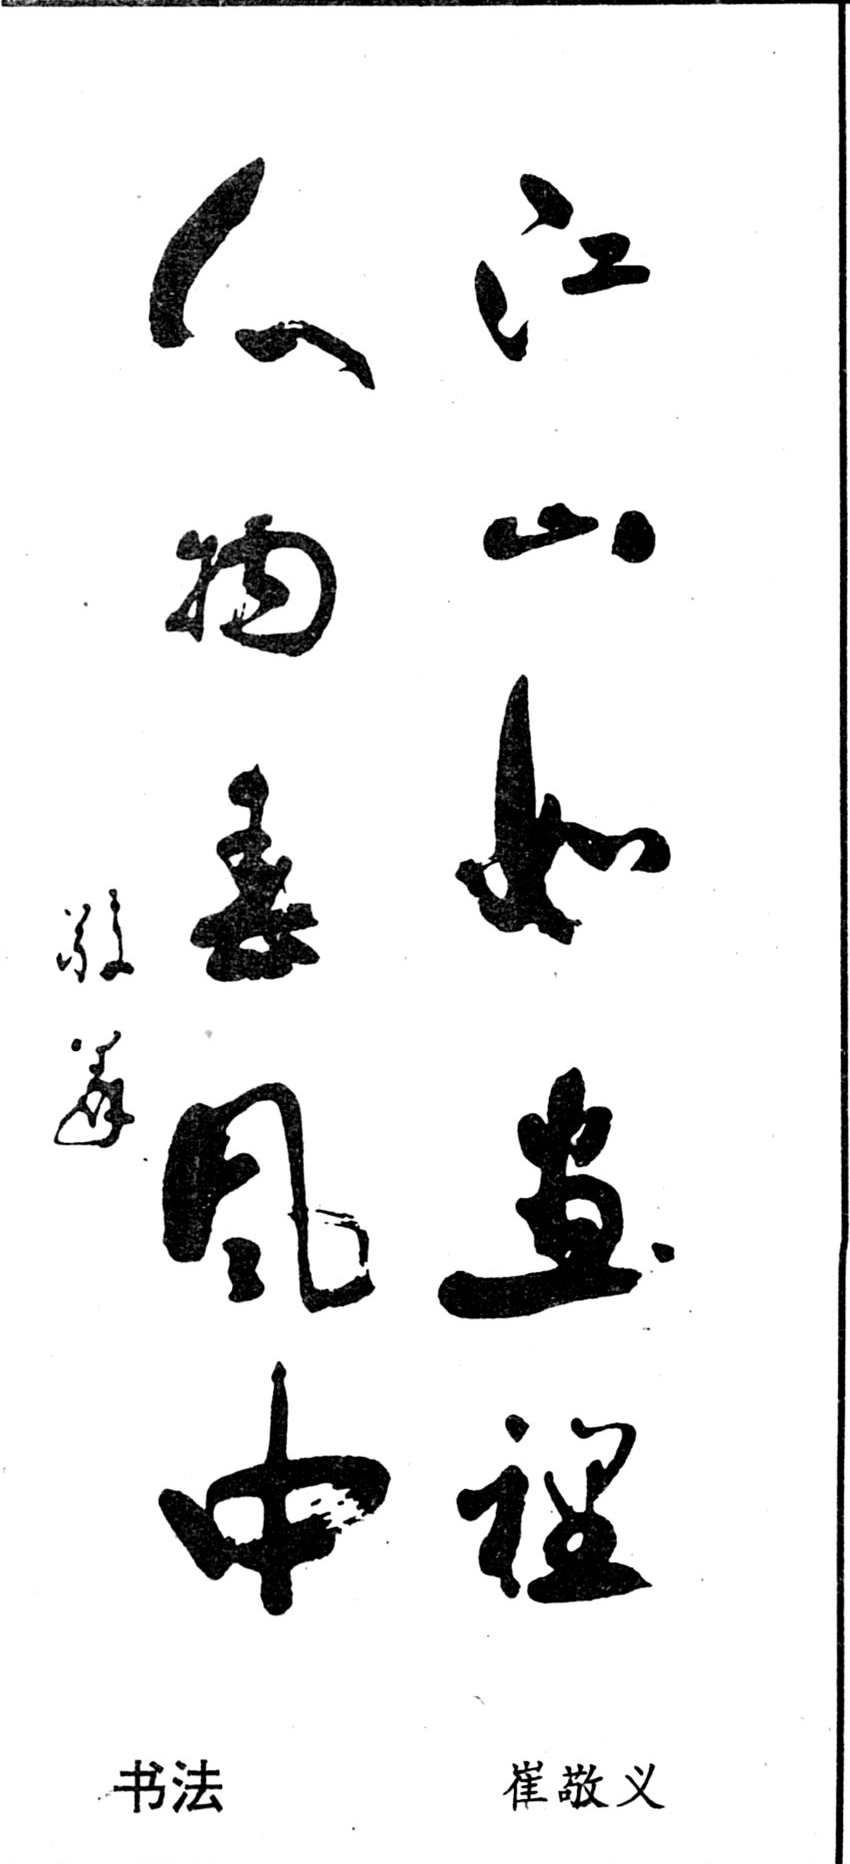 江山如画裡
人物春风中
敬義
书法 崔敬义